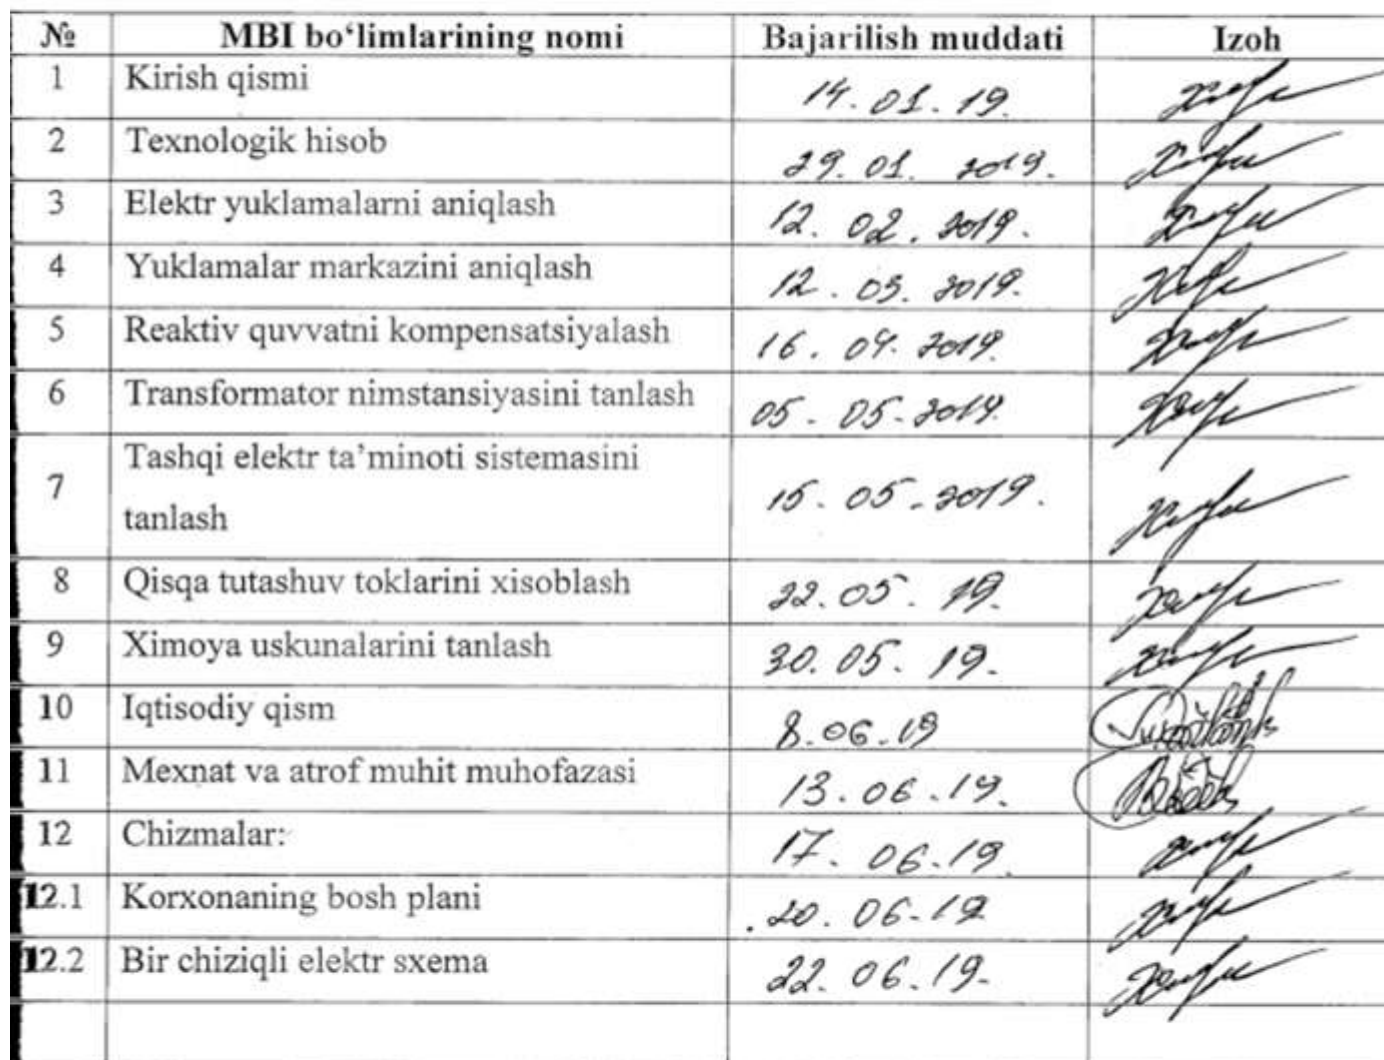 № MBI bo‘limlarining nomi Bajarilish muddati Izoh
1 Kirish qismi 14.01.19.
2 Texnologik hisob 29.01.2019.
3 Elektr yuklamalarni aniqlash 12.02.2019.
4 Yuklamalar markazini aniqlash 12.03.2019.
5 Reaktiv quvvatni kompensatsiyalash 16.04.2019.
6 Transformator nimstansiyasini tanlash 05.05.2019.
7 Tashqi elektr ta’minoti sistemasini
tanlash 15.05.2019.
8 Qisqa tutashuv toklarini xisoblash 22.05.19.
9 Ximoya uskunalarini tanlash 30.05.19.
10 Iqtisodiy qism 8.06.19
11 Mexnat va atrof muhit muhofazasi 13.06.19.
12 Chizmalar: 17.06.19
12.1 Korxonaning bosh plani 20.06-19
12.2 Bir chiziqli elektr sxema 22.06.19.